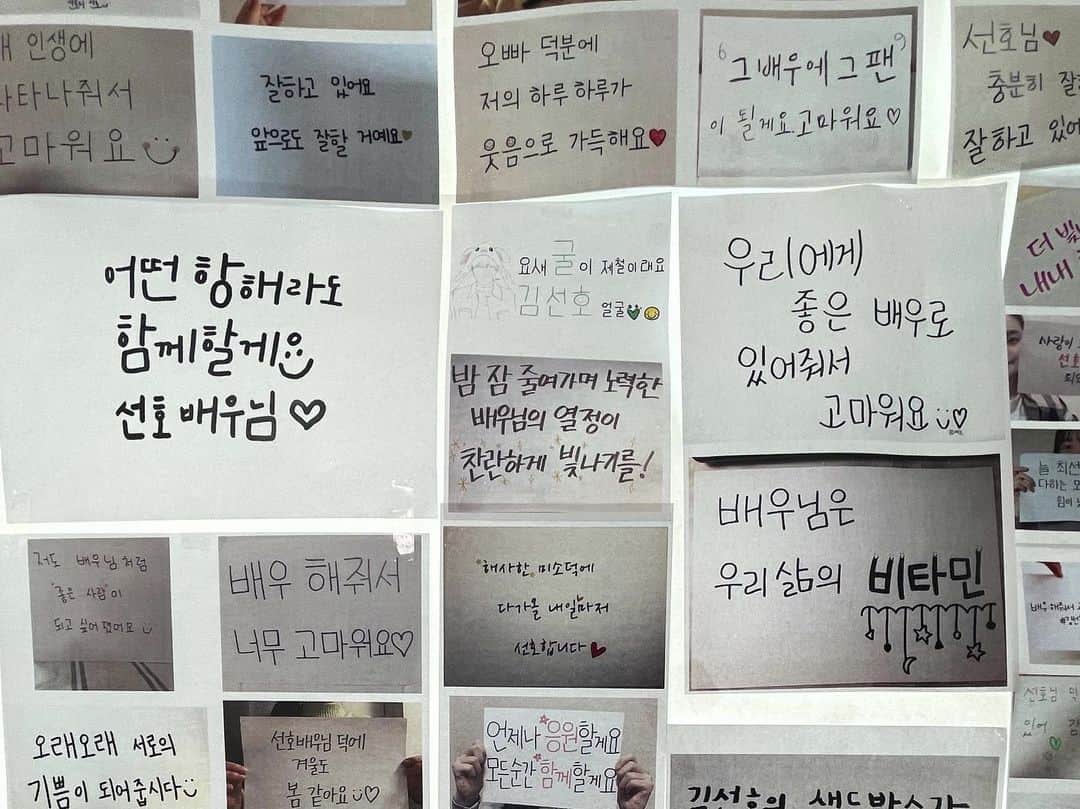 인생에
나타나줘서
고마워요
잘하고 있어요
앞으로도 잘할 거예요
오빠 덕분에
저의 하루 하루가
웃음으로 가득해요
그 배우에 그 팬
이 될게요 고마워요
선호님
충분히
잘하고 있어
어떤 항해라도
함께할게요
선호 배우님
요새 굴이 제철이래요
김선호 얼굴
밤 잠 줄여가며 노력한
배우님의 열정이
찬란하게 빛나기를!
우리에게
좋은 배우로
있어줘서
고마워요
더
내내
사랑이
선호
늘 최선
다하는
배우님은
우리 삶의 비타민
저도 배우님처럼
"좋은 사람"이
되고 싶어졌어요
배우 해줘서
너무 고마워요
해사한 미소덕에
다가올 내일마저
선호합니다
배우 해줘서
선호님 덕
있어
오래오래 서로의
기쁨이 되어줍시다
선호배우님 덕에
겨울도
봄 같아요
언제나 응원할게요
모든순간 함께할게요
김선호의